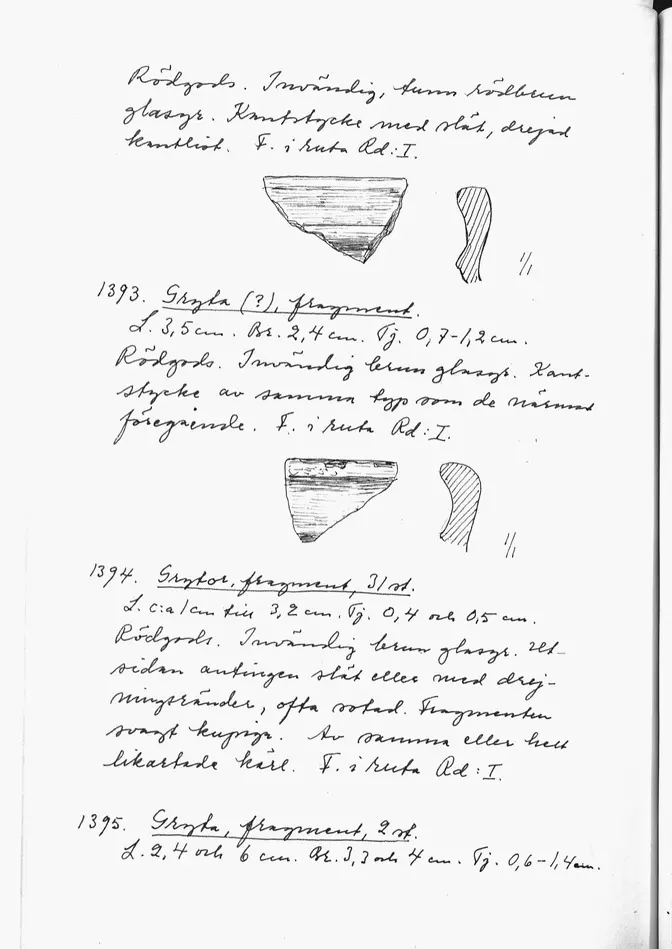 Rödgods. Invändig, tunn rödbrun
glasyr. Kantstycke med slät, drejad
kantlist. F. i ruta Rd:I.
1/1
1393. Gryta (?), fragment.
L. 3,5 cm. Br. 2,4 cm. Tj. 0,7-1,2 cm.
Rödgods. Invändig brun glasyr. Kant-
stycke av samma typ som de närmast
föregående. F. i ruta Rd:I.
1/1
1394. Grytor, fragment, 31 st.
L. c:a 1 cm till 3,2 cm. Tj. 0,4 och 0,5 cm.
Rödgods. Invändig brun glasyr. Ut-
sidan antingen slät eller med drej-
ningsränder, ofta sotad. Fragmenten
svagt kupiga. Av samma eller helt
likartade kärl. F. i ruta Rd:I.
1395. Gryta, fragment, 2 st.
L. 2,4 och 6 cm. Br. 3,3 och 4 cm. Tj. 0,6-1,4 cm.